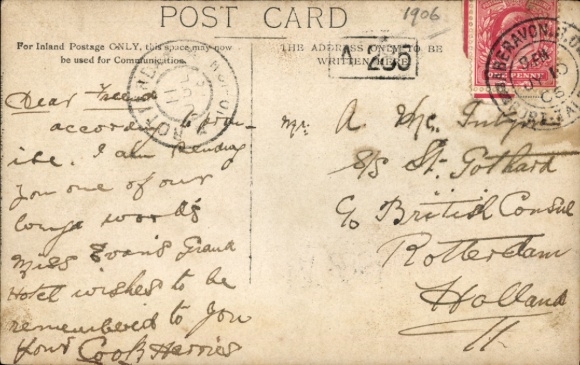 POST CARD
1906
For Inland Postage ONLY, this space may now
be used for Communication.
THE ADDRESS ONLY TO BE
WRITTEN HERE
A 205
ABERAVON
JY 10
06
ONE PENNY
Dear
according
ise. I am sending
you one of our
longa words
Miss Evans Grand
Hotel wishes to be
remembered to you
your Cook Harries
Mr. A.
S/S St. Gothard
C/o British Consul
Rotterdam
Holland